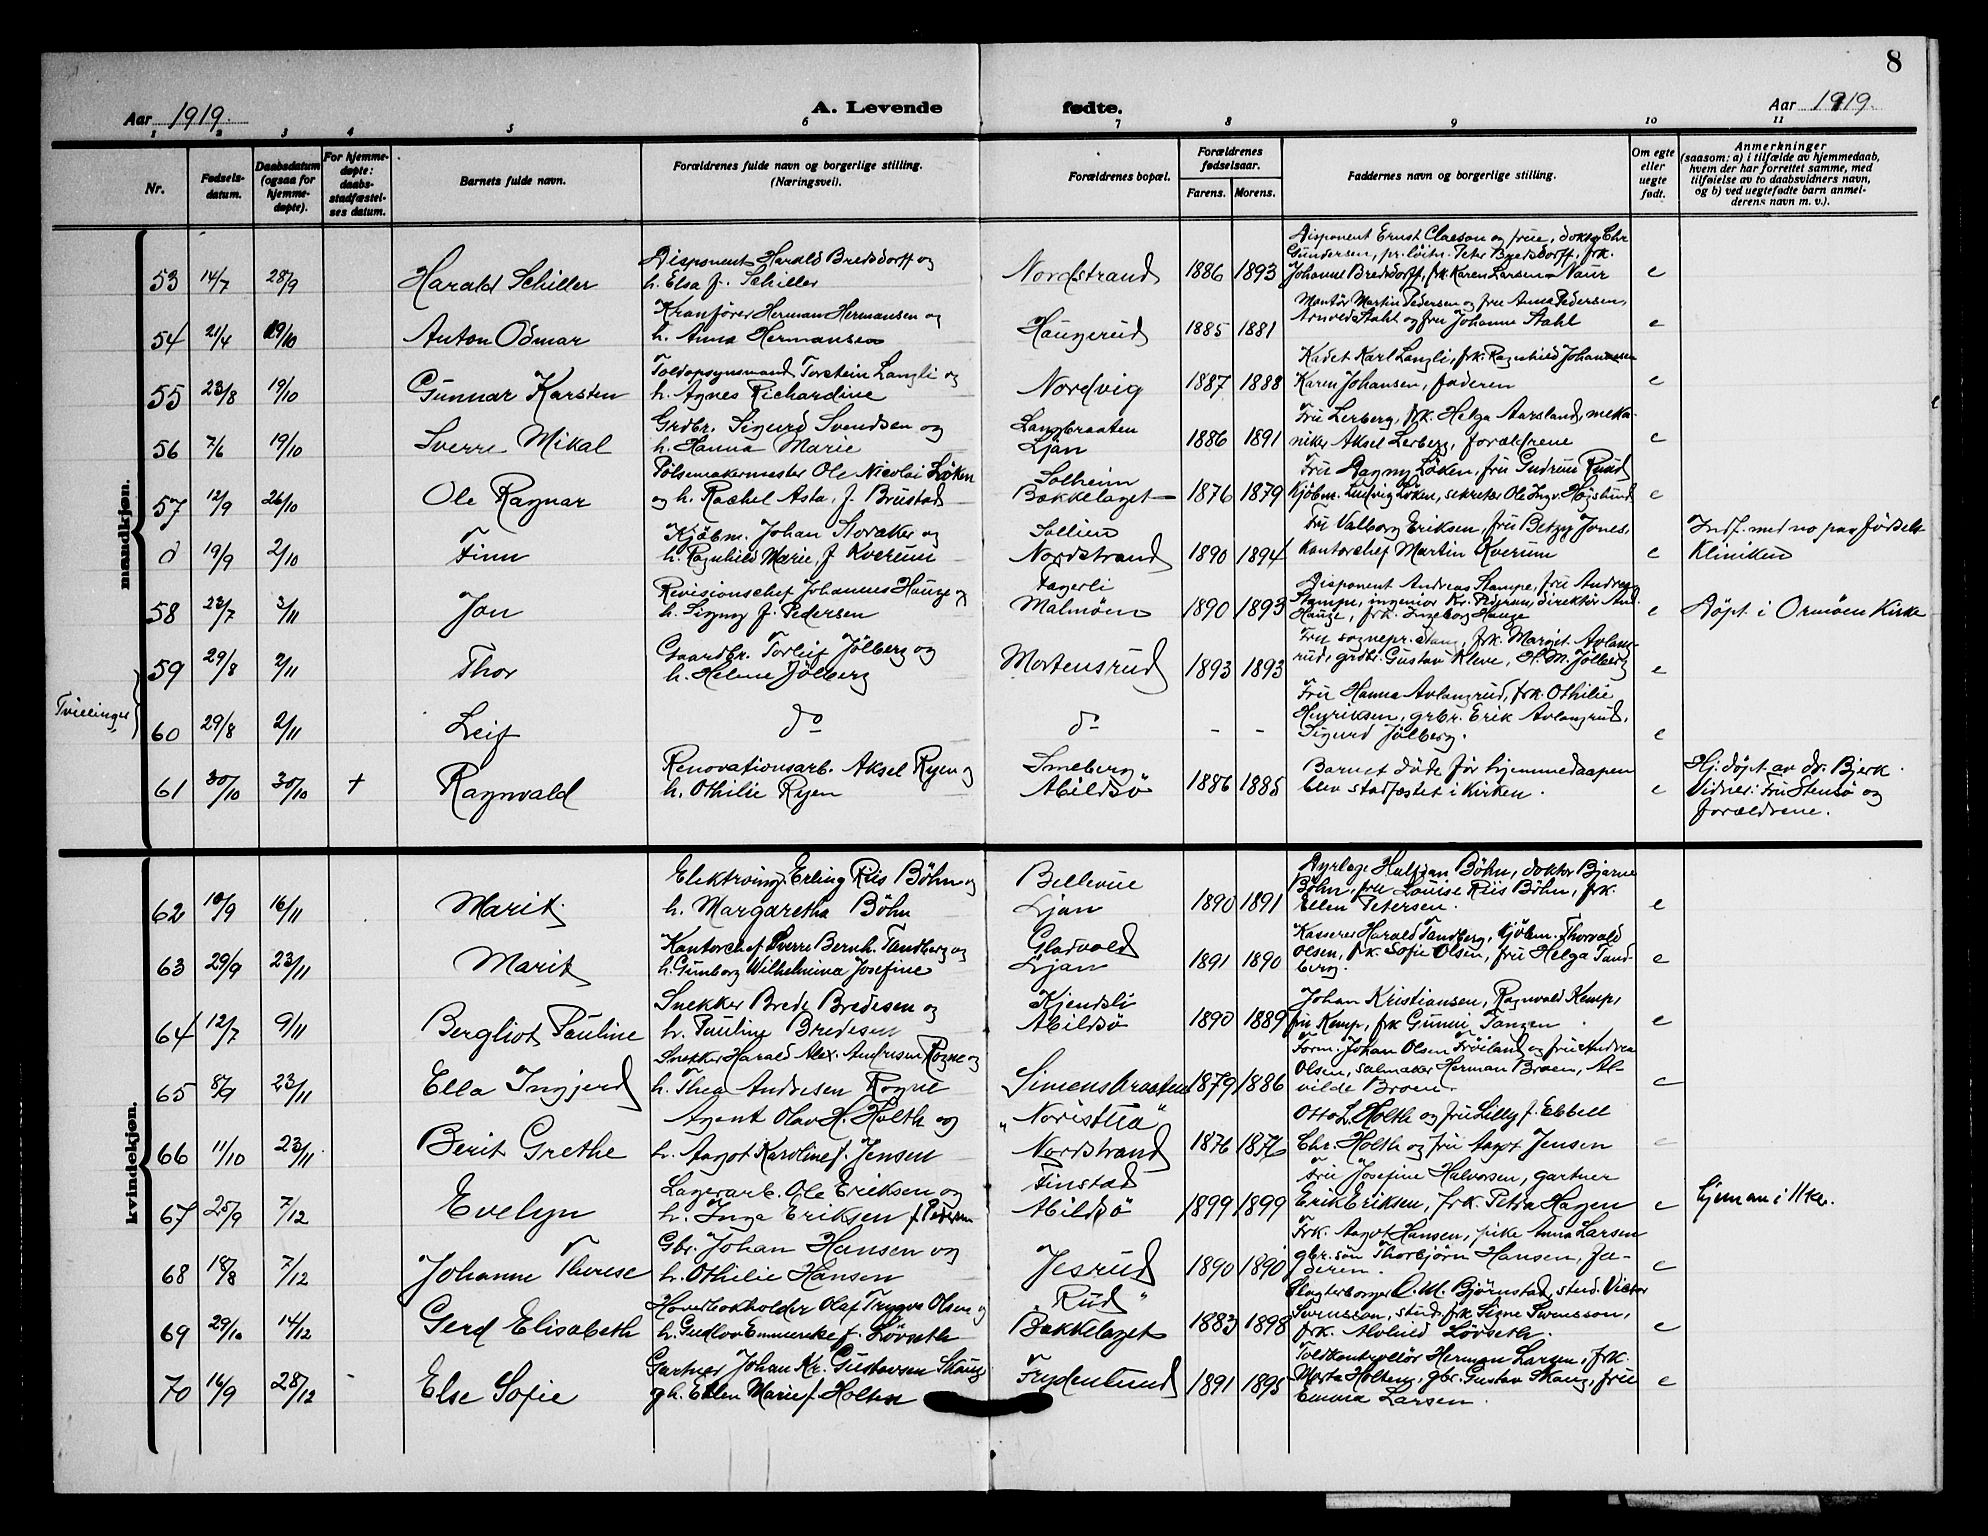 8
Aar 1919.
A. Levende fødte.
Aar 1919.
1 2 3 4 5 6 7 8 9 10 11
Nr.
Fødsels-
datum.
Daabsdatum
(ogsaa for
hjemme-
døpte).
For hjemme-
døpte:
daabs-
stadfæstel-
ses datum.
Barnets fulde navn.
Forældrenes fulde navn og borgerlige stilling.
(Næringsvei).
Forældrenes bopæl.
Forældrenes
fødselsaar.
Farens. Morens.
Faddernes navn og borgerlige stilling.
Om egte
eller
uegte
født.
Anmerkninger
(saasom: a) i tilfælde av hjemmedaab,
hvem der har forrettet samme, med
tilføielse av to daabsvidners navn,
og b) ved uegtefødte barn anmel-
derens navn m. v.).
mandkjøn.
53 14/7 28/9 Harald Schiller
Disponent Harald Bredsdorff og
h. Elsa f. Schiller
Nordstrand 1886 1893
Disponent Ernst Claeson og frue, doktor Chr
Gundersen, pr.løitn. Peter Bredsdorff, frk.
Johanne Bredsdorff, frk. Karen Larsen Naur e
54 21/4 19/10 Anton Odmar
Kranfører Herman Hermansen og
h. Anna Hermansen
Haugerud 1885 1881
Montør Martin Pedersen og fru Anna Pedersen,
Arnold Stahl og fru Johanne Stahl e
55 23/8 19/10 Gunnar Karsten
Toldopsynsmand Torstein Langli og
h. Agnes Richardine
Nordvig 1887 1888
Kadet Karl Langli, frk. Ragnhild Johannesen
Karen Johansen, faderen e
56 7/6 19/10 Sverre Mikal
Grdbr. Sigurd Svendsen og
h. Hanna Marie
Langbraaten
Ljan 1886 1891
Fru Lerberg, frk. Helga Aarsland, meka-
niker Aksel Lerberg, forældrene e
57 12/9 26/10 Ole Ragnar
Pølsemakermester Ole Nicolai Løken
og h. Rachel Asta, f. Brustad
Solheim
Bækkelaget 1876 1879
Fru Dagny Løken, fru Gudrun Rund
Kjøbm. Ludvig Løken, sekretær Ole Ingv. Høgslund e
d 19/9 2/10 Finn
Kjøbm. Johan Noraker og
h. Ragnhild Marie, f Kverum
Sollien
Nordstrand 1890 1894
Fru Valborg Eriksen, fru Betzy Jones,
Kontorchef Martin Kverum e
Indf. med no paa Fødsels
Kliniken
58 23/7 3/11 Jan
Revisionschef Johannes Hauge og
h. Signy f. Pedersen
Fagerli
Malmøen 1890 1893
Disponent Andreas Stampe, fru Andrea
Stampe, ingeniør Kr. Pedersen, direktør And.
Hauge, frk. Ingeborg Hauge e
Døpt i Ormøen Kirke
Tvillinger
59 29/8 2/11 Thor
Gaardbr. Torleif Jølberg og
h. Helene Jølberg
Mortensrud 1893 1893
Fru sognepr. Stang, frk. Margit Avlang-
rud, grdbr. Gustav Kleve, H. M. Jølberg e
60 29/8 2/11 Leif
do
do - -
Fru Hanna Avlangrud, frk. Othilie
Henriksen, grbr. Erik Avlangrud,
Sigurd Jølberg. e
61 30/10 30/10 + Ragnvald
Renovationsarb. Aksel Ryen og
h. Othilie Ryen
Smeberg
Abildsø 1886 1885
Barnet døde før hjemmedaapen
blev stadfæstet i Kirken. e
Hj. døpt av dr. Bjerk.
Vidner: Fru Stensø og
forældrene.
kvindekjøn.
62 10/9 16/11 Marit
Elektroing. Erling Riis Bøhn og
h. Margaretha Bøhn
Bellevue
Ljan 1890 1891
Dyrlæge Halfdan Bøhn, doktor Bjarne
Bøhn, fru Louise Riis Bøhn, frk.
Ellen Petersen. e
63 29/9 23/11 Marit
Kontorchef Sverre Bernh. Tandberg og
h. Gunborg Wilhelmina Josefine
Gladvold
Ljan 1891 1890
Kasserer Harald Tandberg, Kjøbm. Thorvald
Olsen, frk. Sofie Olsen, fru Helga Tand-
berg. e
64 12/7 9/11 Bergliot Pauline
Snekker Brede Bredesen og
h. Pauline Bredesen
Kjendsli
Abildsø 1890 1889
Johan Kristiansen, Ragnvald Kemp,
fru Kemp, frk Gunni Tangen. e
65 8/9 23/11 Ella Ingjerd
Snekker Harald Alex. Andresen Rogne og
h. Thea Andresen Rogne
Simensbraaten 1879 1886
Form. Johan Olsen Frøiland og fru Andrea
Olsen, salmaker Herman Broen, Al-
vilde Broen. e
66 11/10 23/11 Berit Grethe
Agent Olav H. Holth og
h. Aagot Karoline f. Jensen
"Noristua"
Nordstrand 1876 1876
Otto L. Holth og fru Lilly f. Ebbell
Chr. Holth og fru Aagot Jensen e
67 25/9 7/12 Evelyn
Lagerarb. Ole Eriksen og
h. Inga Eriksen f. Pedersen
Finstad
Abildsø 1899 1899
Fru Josefine Halvorsen, gartner
Erik Eriksen, frk. Petra Hagen e
68 18/8 7/12 Johanne Therese
Gbr. Johan Hansen og
h. Othilie Hansen
Jesrud 1890 1890
Frk. Aagot Hansen, pike Anna Larsen
gbr.søn Thorbjørn Hansen, fa-
deren. e
69 29/10 14/12 Gerd Elisabeth
Hovedbokholder Olaf Trygve Olsen og
h. Gudlov Emmereke f. Løvseth
"Rud"
Bækkelaget 1883 1898
Slagterborger O. M. Bjørnstad, stud. Victor
Svensson, stud. frk. Signe Svensson,
frk. Alvhild Løvseth. e
70 16/9 28/12 - Else Sofie
Gartner Johan Kr. Gustavsen Skaug
og h. Ellen Marie f. Holten
Frydenlund 1891 1895
Toldkontrollør Herman Larsen, frk.
Marta Holten, gbr. Gustav Skaug, fru
Emma Larsen. e